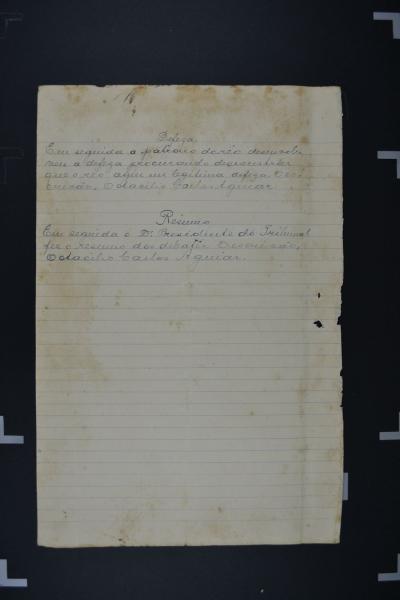 Defeza
Em seguida o patrono do réo desenvol-
veu a defeza procurando demonstrar
que o réo agiu em legitima defeza. O es-
crivão, Octacilio Carlos Aguiar
Resumo
Em seguida o Dr. Presidente do Tribunal
fez o resumo dos debates O escrivão,
Octacilio Carlos Aguiar.